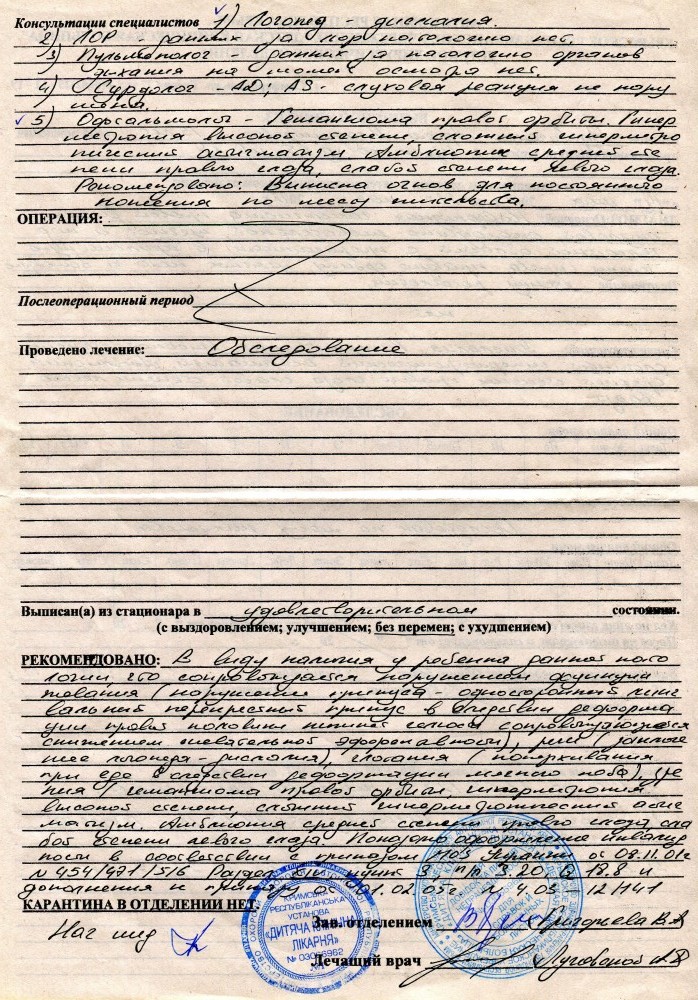 Консультации специалистов 1) Логопед - дислалия.
2) ЛОР - данных за лор патологию нет.
3) Пульмонолог - данных за патологию органов
дыхания на момент осмотра нет.
4) Сурдолог - AD; AS - слуховая реакция не нару
шена.
5) Офтальмолог - Гемангиома правой орбиты. Гипер
метропия высокой степени, сложный гиперметро
пический астигматизм. Амблиопия средней сте
пени правого глаза, слабой степени левого глаза.
Рекомендовано: Выписка очков для постоянного
ношения по месту жительства.
ОПЕРАЦИЯ:
Послеоперационный период
Проведено лечение: Обследование
Выписан(а) из стационара в удовлетворительном состоянии.
(с выздоровлением; улучшением; без перемен; с ухудшением)
РЕКОМЕНДОВАНО: В виду наличия у ребенка данной пато
логии, что сопровождается нарушением функции
жевания (нарушение прикуса - односторонний линг
вальный перекрестный прикус в следствии деформа
ции правой половины нижней челюсти сопровождающееся
снижением жевательной эффективности), речи (заключе
ние логопеда - дислалия), глотания (поперхивания
при еде в следствии деформации мягкого неба), зре
ния (гемангиома правой орбиты, гиперметропия
высокой степени, сложный гиперметропический астиг
матизм. Амблиопия средней степени правого глаза, сла
бой степени левого глаза. Показано оформление инвалид
ности в соответствии с приказом МОЗ Украины от 08.11.01г
N 454/471/516 Раздел пункт 3. 18.8 и
дополнения к приказу от 01.02.05г. N 4.03 12/1141
КАРАНТИНА В ОТДЕЛЕНИИ НЕТ.
Зав. отделением
Нач мед
Лечащий врач
КРИМСЬКА
РЕСПУБЛІКАНСЬКА
УСТАНОВА
«ДИТЯЧА КЛІНІЧНА
ЛІКАРНЯ»